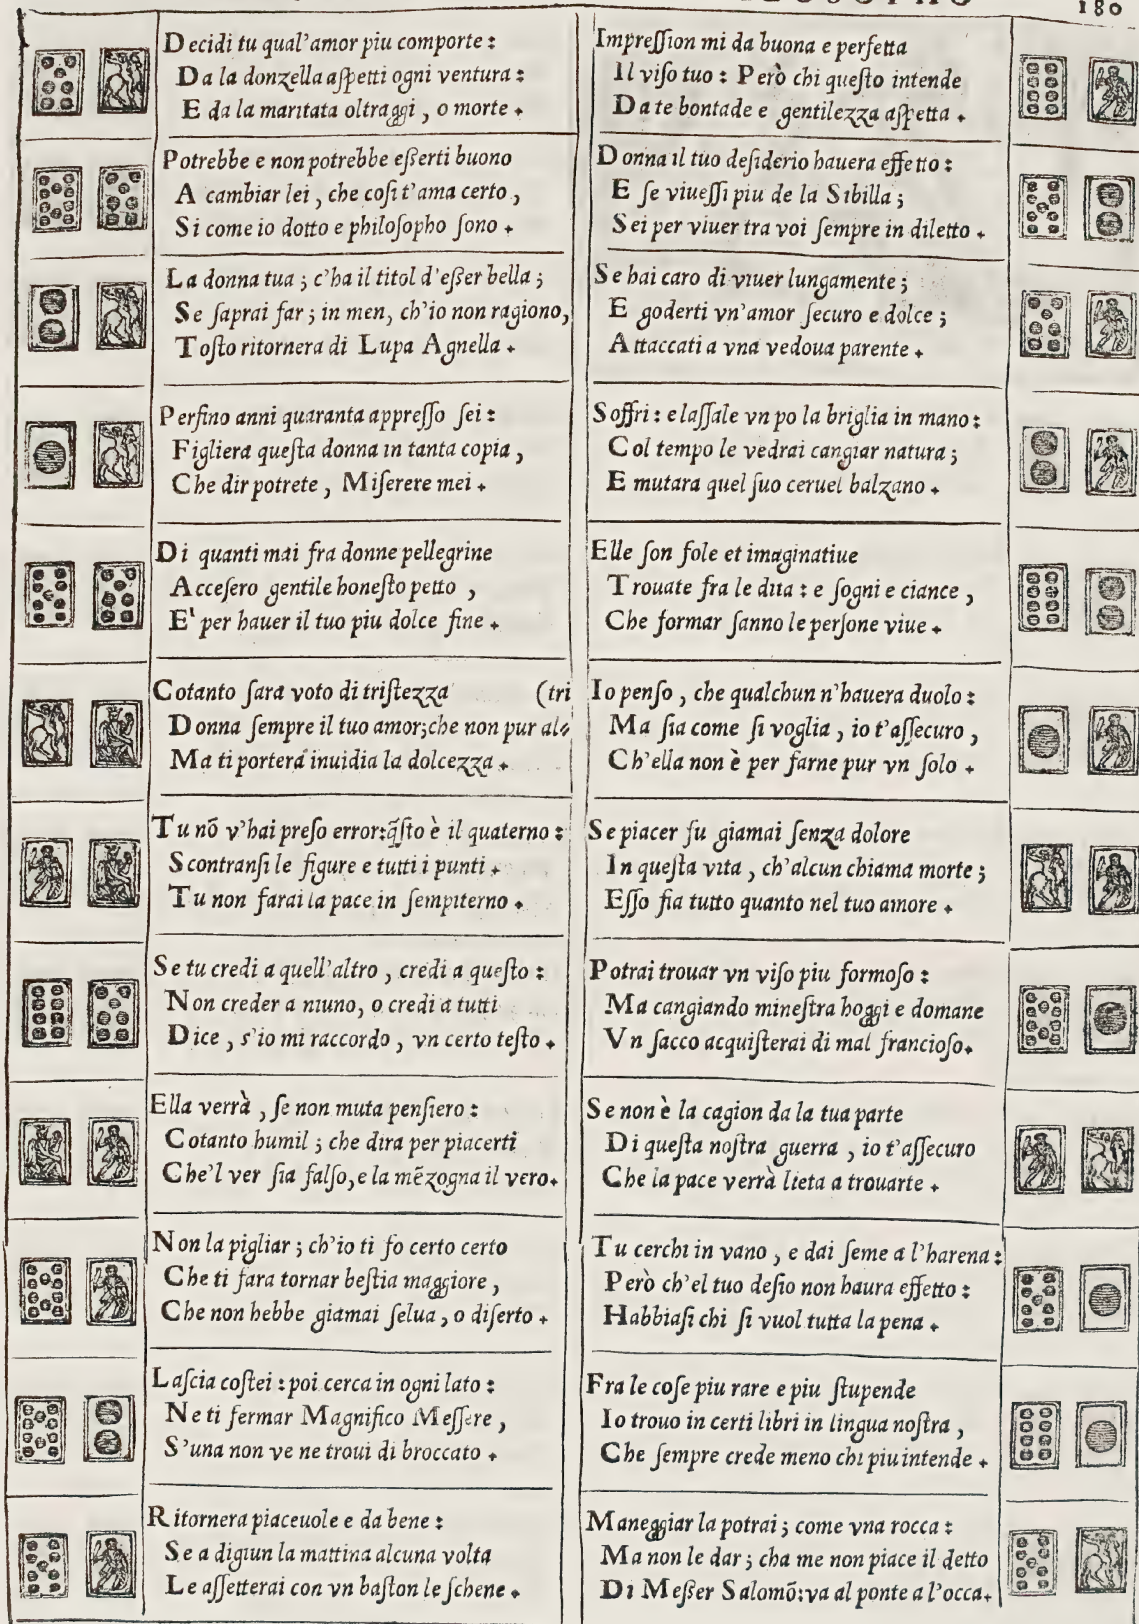 180
Decidi tu qual'amor piu comporte :
Da la donzella aſpetti ogni ventura :
E da la maritata oltraggi , o morte .
Potrebbe e non potrebbe eſſerti buono
A cambiar lei , che coſi t'ama certo ,
Si come io dotto e philoſopho ſono .
La donna tua ; c'ha il titol d'eſſer bella ;
Se ſaprai far ; in men, ch'io non ragiono,
Toſto ritornera di Lupa Agnella .
Perfino anni quaranta appreſſo ſei :
Figliera queſta donna in tanta copia ,
Che dir potrete , Miſerere mei .
Di quanti mai fra donne pellegrine
Acceſero gentile honeſto petto ,
E' per hauer il tuo piu dolce fine .
Cotanto ſara voto di triſtezza (tri
Donna ſempre il tuo amor;che non pur al-
Ma ti porterà inuidia la dolcezza .
Tu nō v'hai preſo error:q̃ſto è il quaterno :
Scontranſi le figure e tutti i punti .
Tu non farai la pace in ſempiterno .
Se tu credi a quell'altro , credi a queſto :
Non creder a niuno, o credi a tutti
Dice , s'io mi raccordo , vn certo teſto .
Ella verrà , ſe non muta penſiero :
Cotanto humil ; che dira per piacerti
Che'l ver ſia falſo,e la mēzogna il vero.
Non la pigliar ; ch'io ti fo certo certo
Che ti fara tornar beſtia maggiore ,
Che non hebbe giamai ſelua , o diſerto .
Laſcia coſtei : poi cerca in ogni lato :
Ne ti fermar Magnifico Meſſere ,
S'una non ve ne troui di broccato .
Ritornera piaceuole e da bene :
Se a digiun la mattina alcuna volta
Le aſſetterai con vn baſton le ſchene .
Impreſſion mi da buona e perfetta
Il viſo tuo : Però chi queſto intende
Da te bontade e gentilezza aſpetta .
Donna il tuo deſiderio hauera effetto :
E ſe viueſſi piu de la Sibilla ;
Sei per viuer tra voi ſempre in diletto .
Se hai caro di viuer lungamente ;
E goderti vn'amor ſecuro e dolce ;
Attaccati a vna vedoua parente .
Soffri : e laſſale vn po la briglia in mano :
Col tempo le vedrai cangiar natura ;
E mutara quel ſuo ceruel balzano .
Elle ſon fole et imaginatiue
Trouate fra le dita : e ſogni e ciance ,
Che formar ſanno le perſone viue .
Io penſo , che qualchun n'hauera duolo :
Ma ſia come ſi voglia , io t'aſſecuro ,
Ch'ella non è per farne pur vn ſolo .
Se piacer fu giamai ſenza dolore
In queſta vita , ch'alcun chiama morte ;
Eſſo fia tutto quanto nel tuo amore .
Potrai trouar vn viſo piu formoſo :
Ma cangiando mineſtra hoggi e domane
Vn ſacco acquiſterai di mal francioſo.
Se non è la cagion da la tua parte
Di queſta noſtra guerra , io t'aſſecuro
Che la pace verrà lieta a trouarte .
Tu cerchi in vano , e dai ſeme a l'harena :
Però ch'el tuo deſio non haura effetto :
Habbiaſi chi ſi vuol tutta la pena .
Fra le coſe piu rare e piu ſtupende
Io trouo in certi libri in lingua noſtra ,
Che ſempre crede meno chi piu intende .
Maneggiar la potrai ; come vna rocca :
Ma non le dar ; cha me non piace il detto
Di Meſſer Salomō:va al ponte a l'occa.